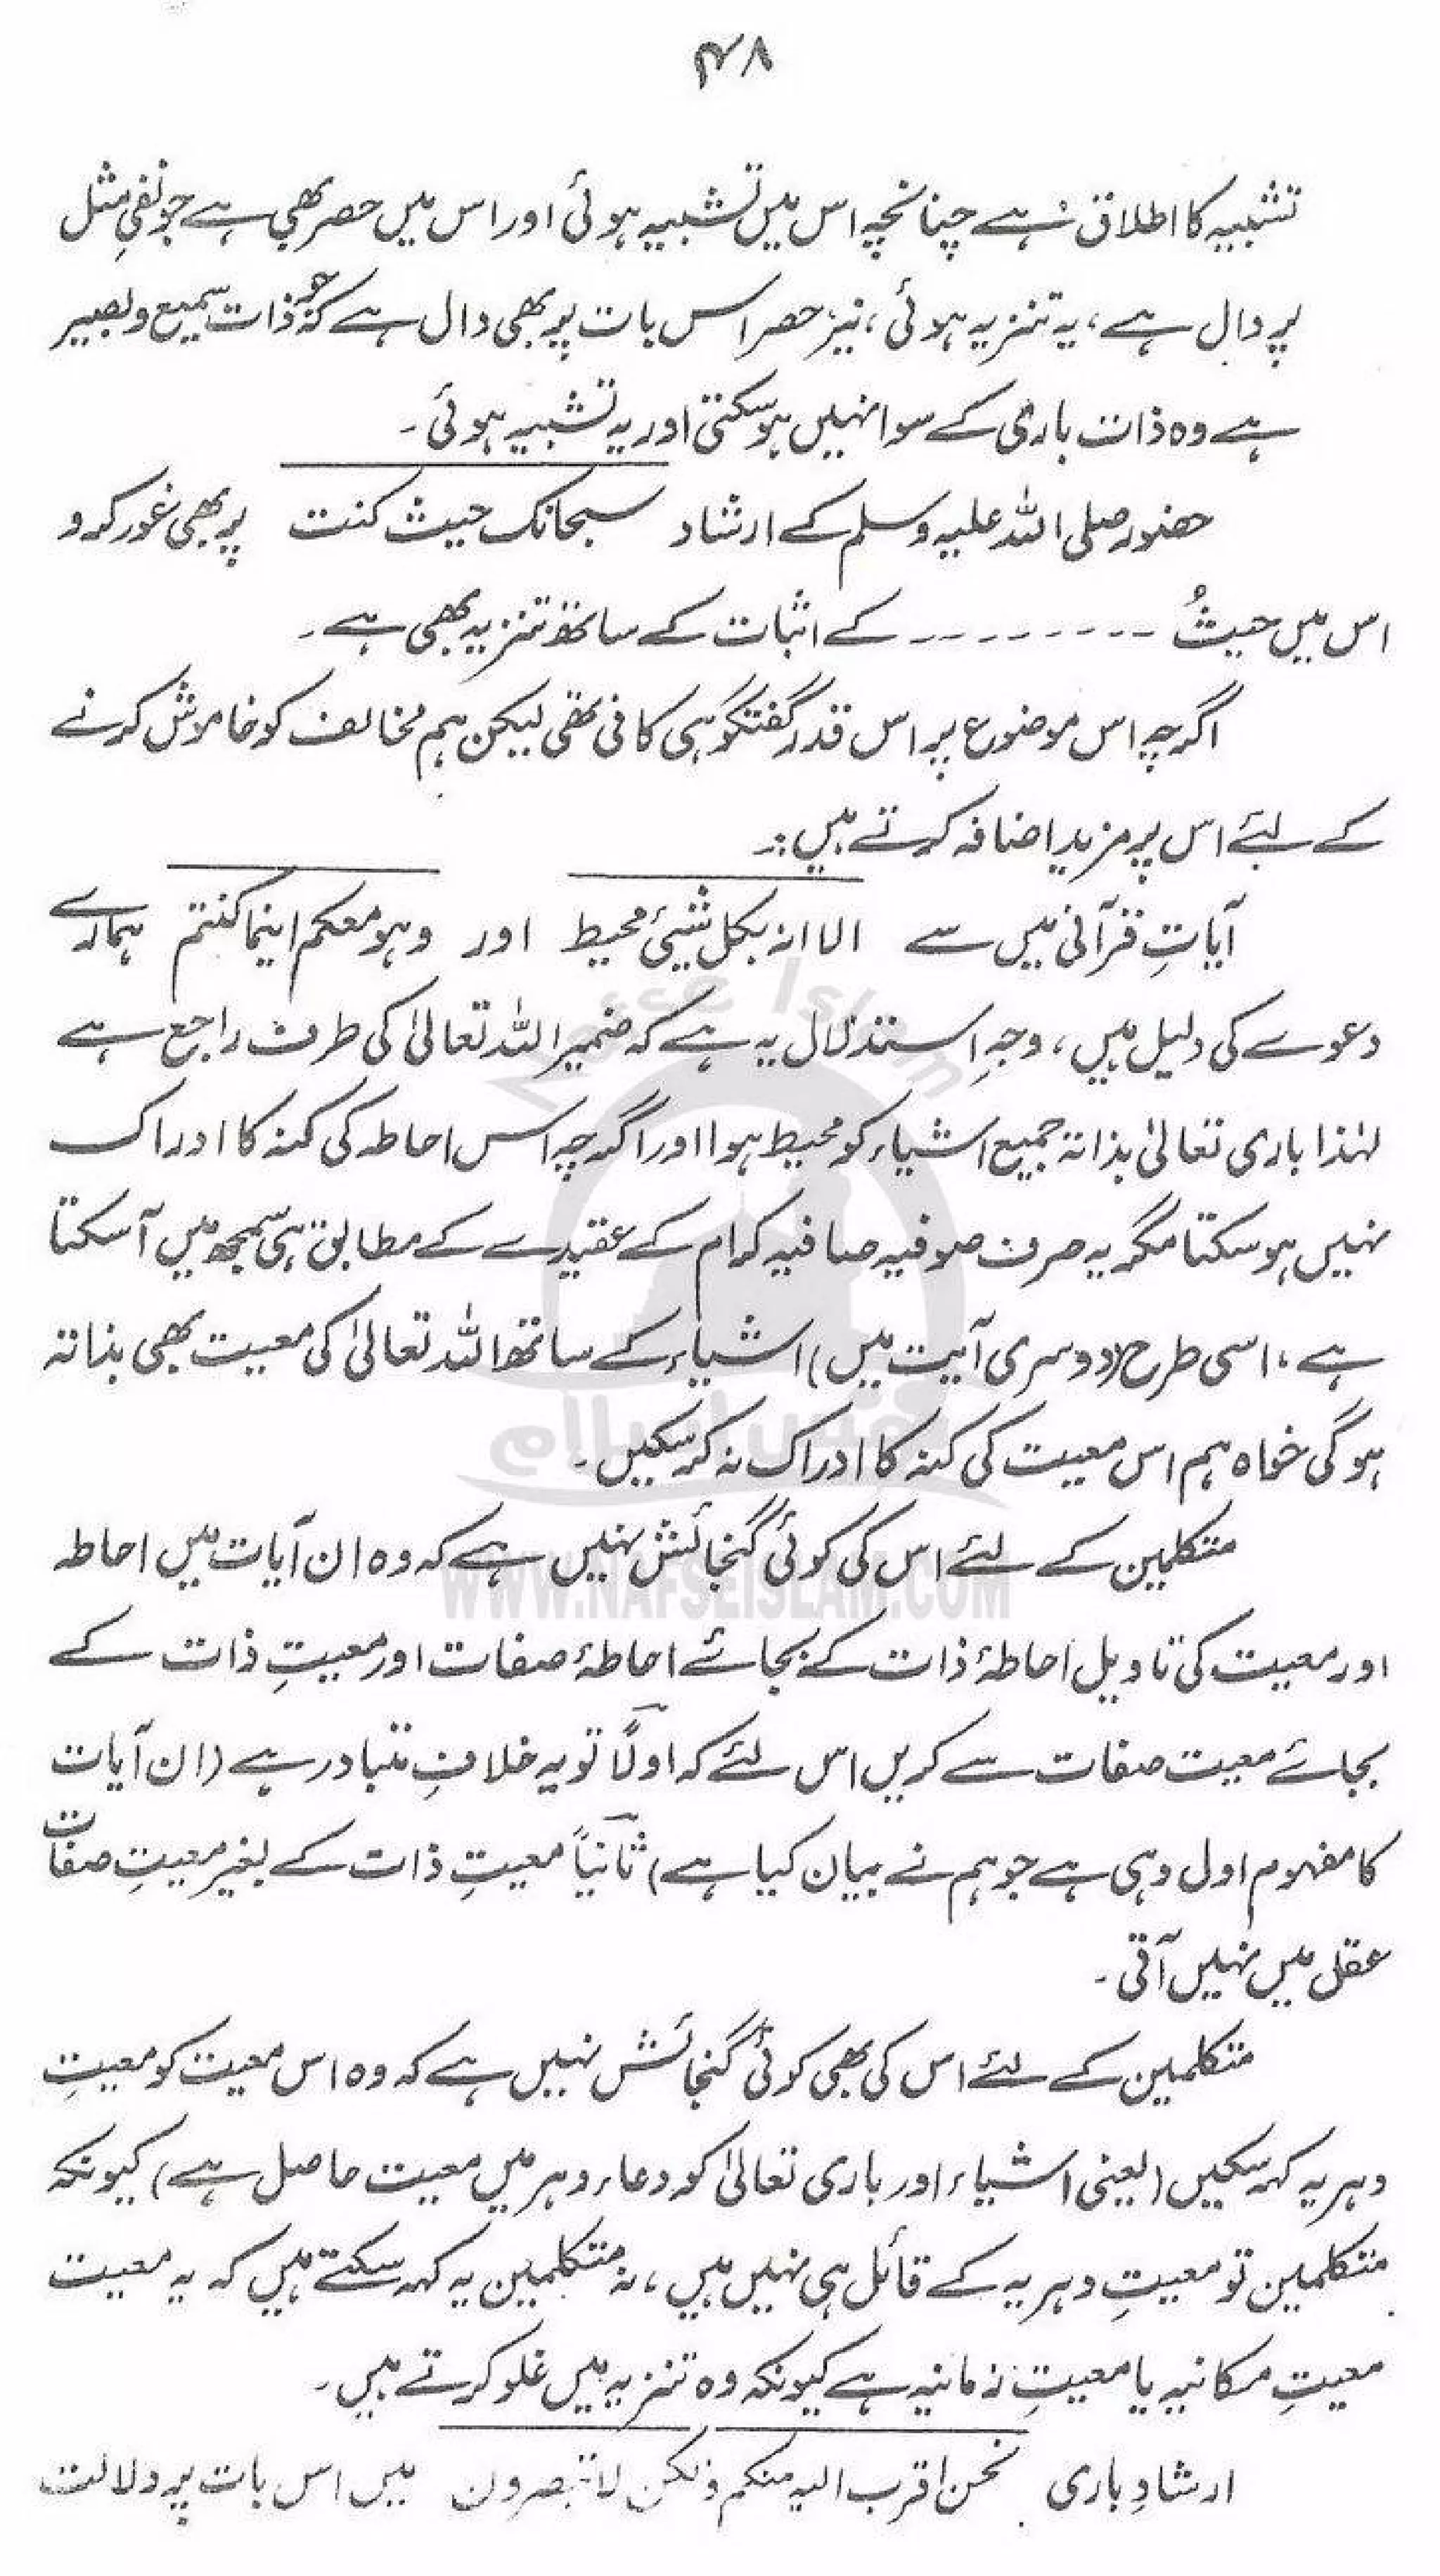 ۴۸
تشبیہ کا اطلاق ہے چنانچہ اس میں تشبیہ ہوئی اور اس میں حصر بھی ہے جو نفیِ مثل
پر دال ہے، یہ تنزیہ ہوئی، نیز حصر اس بات پر بھی دال ہے کہ جو ذات سمیع و بصیر
ہے وہ ذات باری کے سوا نہیں ہو سکتی اور یہ تشبیہ ہوئی۔
حضور صلی اللہ علیہ وسلم کے ارشاد سبحانک حیث کنت پر بھی غور کرو
اس میں حیثُ --------- کے اثبات کے ساتھ تنزیہ بھی ہے۔
اگرچہ اس موضوع پر اس قدر گفتگو ہی کافی تھی لیکن ہم مخالف کو خاموش کرنے
کے لئے اس پر مزید اضافہ کرتے ہیں:۔
آیاتِ قرآنی میں سے الا انہ بکل شیئ محیط اور وہو معکم اینما کنتم ہمارے
دعوے کی دلیل ہیں، وجہِ استدلال یہ ہے کہ ضمیر اللہ تعالیٰ کی طرف راجع ہے
لہٰذا باری تعالیٰ بذاتہ جمیع اشیاء کو محیط ہوا اور اگرچہ اس احاطہ کی کنہ کا ادراک
نہیں ہو سکتا مگر یہ صرف صوفیہ صافیہ کرام کے عقیدے کے مطابق ہی سمجھ میں آ سکتا
ہے، اسی طرح (دوسری آیت میں) اشیاء کے ساتھ اللہ تعالیٰ کی معیت بھی بذاتہ
ہو گی خواہ ہم اس معیت کی کنہ کا ادراک نہ کر سکیں۔
متکلمین کے لئے اس کی کوئی گنجائش نہیں ہے کہ وہ ان آیات میں احاطہ
اور معیت کی تاویل احاطۂ ذات کے بجائے احاطۂ صفات اور معیتِ ذات کے
بجائے معیت صفات سے کریں اس لئے کہ اولاً تو یہ خلافِ متبادر ہے (ان آیات
کا مفہوم اول وہی ہے جو ہم نے بیان کیا ہے) ثانیاً معیتِ ذات کے بغیر معیتِ صفات
عقل میں نہیں آتی۔
متکلمین کے لئے اس کی بھی کوئی گنجائش نہیں ہے کہ وہ اس معیت کو معیتِ
دہریہ کہہ سکیں (یعنی اشیاء اور باری تعالیٰ کو دعاء دہر میں معیت حاصل ہے) کیونکہ
متکلمین تو معیتِ دہریہ کے قائل ہی نہیں ہیں، نہ متکلمین یہ کہہ سکتے ہیں کہ یہ معیت
معیتِ مکانیہ یا معیتِ زمانیہ ہے کیونکہ وہ تنزیہ میں غلو کرتے ہیں۔
ارشادِ باری نحن اقرب الیہ منکم ولکن لا تبصرون میں اس بات پر دلالت
Nafse Islam
نفس اسلام
WWW.NAFSEISLAM.COM